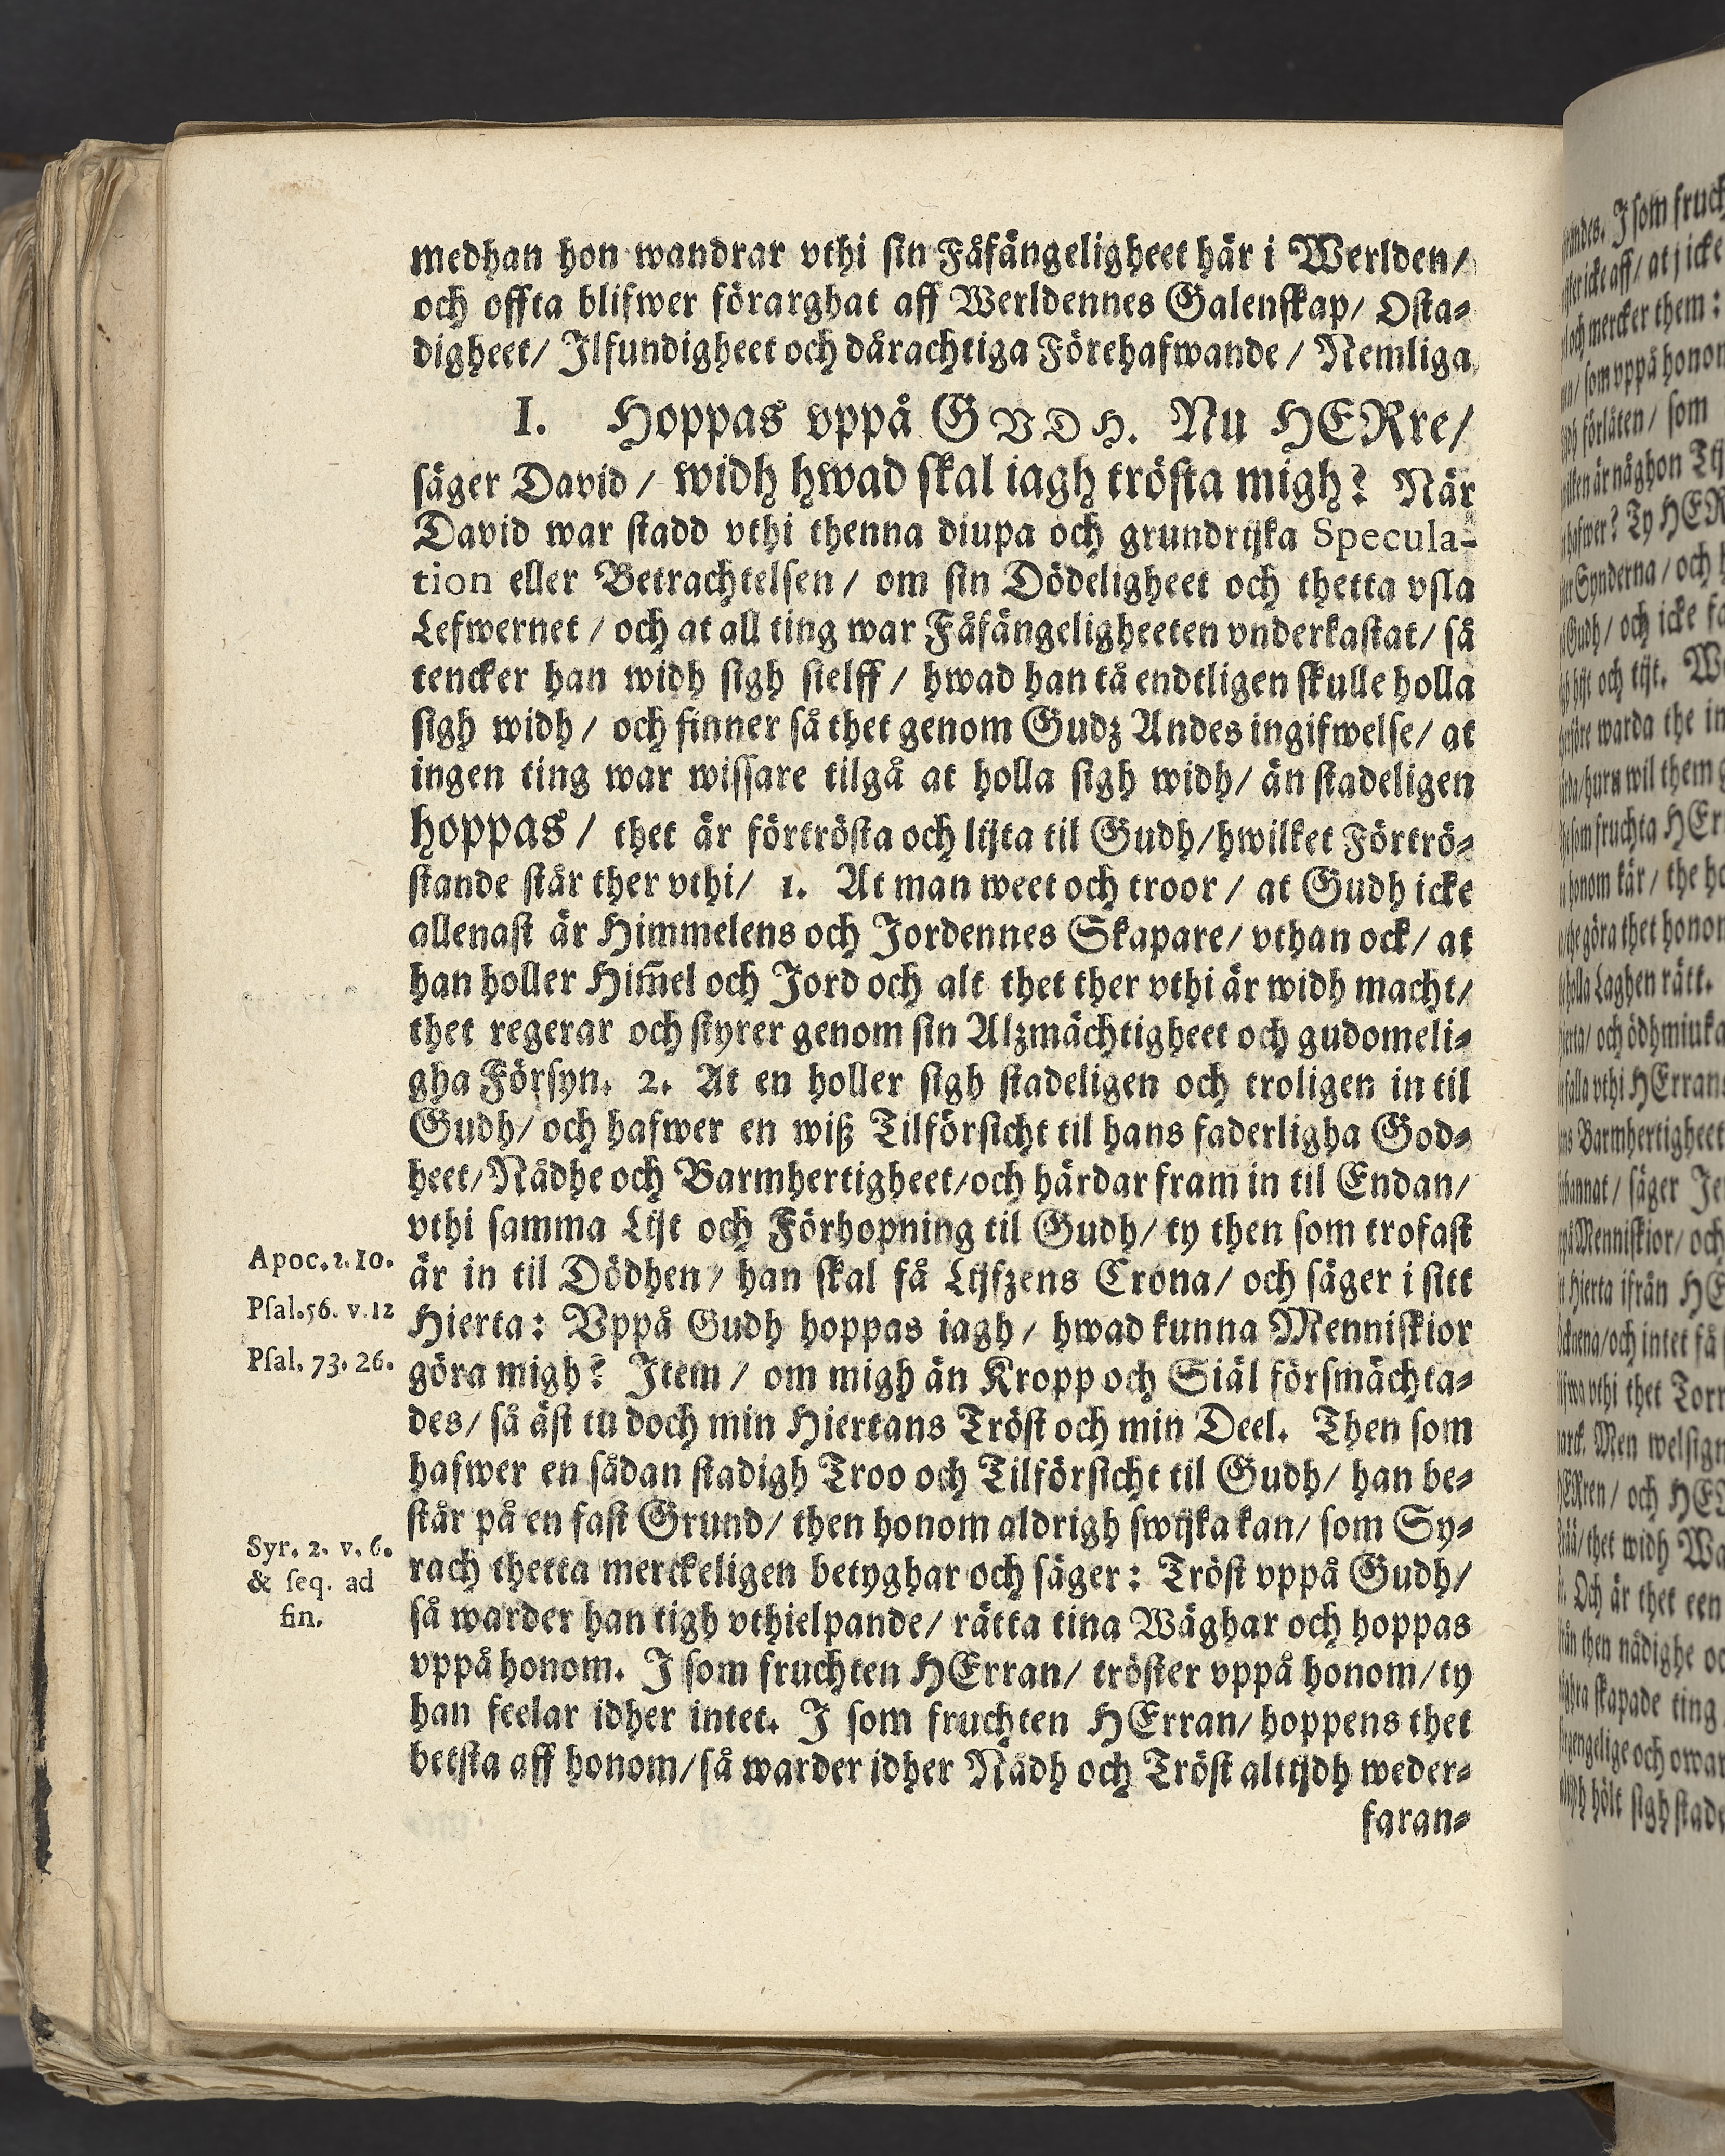 medhan hon wandrar vthi sin Fåfängeligheet här i Werlden/
och offta blifwer förarghat aff Werldennes Galenskap/ Osta-
digheet/ Ilfundigheet och dårachtiga Förehafwande/ Nemliga
I. Hoppas vppå GVDH. Nu HERre/
säger David/ widh hwad skal iagh trösta migh? När
David war stadd vthi thenna diupa och grundrijka Specula-
tion eller Betrachtelsen/ om sin Dödeligheet och thetta vsla
Lefwernet/ och at all ting war Fåfängeligheeten vnderkastat/ så
tencker han widh sigh sielff/ hwad han tå endtligen skulle holla
sigh widh/ och finner så thet genom Gudz Andes ingifwelse/ at
ingen ting war wissare tilgå at holla sigh widh/ än stadeligen
hoppas/ thet är förtrösta och lijta til Gudh/ hwilket Förtrö-
stande står ther vthi/ 1. At man weet och troor/ at Gudh icke
allenast är Himmelens och Jordennes Skapare/ vthan ock/ at
han holler Him̃el och Jord och alt thet ther vthi är widh macht/
thet regerar och styrer genom sin Alzmächtigheet och gudomeli-
gha Försyn. 2. At en holler sigh stadeligen och troligen in til
Gudh/ och hafwer en wiß Tilförsicht til hans faderligha God-
heet/ Nådhe och Barmhertigheet/ och härdar fram in til Endan/
vthi samma Lijt och Förhopning til Gudh/ ty then som trofast
Apoc. 2. 10.
är in til Dödhen/ han skal få Lijfzens Crona/ och säger i sitt
Psal. 56. v. 12
Hierta: Vppå Gudh hoppas iagh/ hwad kunna Menniskior
Psal. 73. 26.
göra migh? Item/ om migh än Kropp och Siäl försmächta-
des/ så äst tu doch min Hiertans Tröst och min Deel. Then som
hafwer en sådan stadigh Troo och Tilförsicht til Gudh/ han be-
står på en fast Grund/ then honom aldrigh swijka kan/ som Sy-
Syr. 2. v. 6.
& seq. ad
fin.
rach thetta merckeligen betyghar och säger: Tröst vppå Gudh/
så warder han tigh vthielpande/ rätta tina Wäghar och hoppas
vppå honom. I som fruchten HErran/ tröster vppå honom/ ty
han feelar idher intet. I som fruchten HErran/ hoppens thet
betsta aff honom/ så warder idher Nådh och Tröst altijdh weder-
faran-